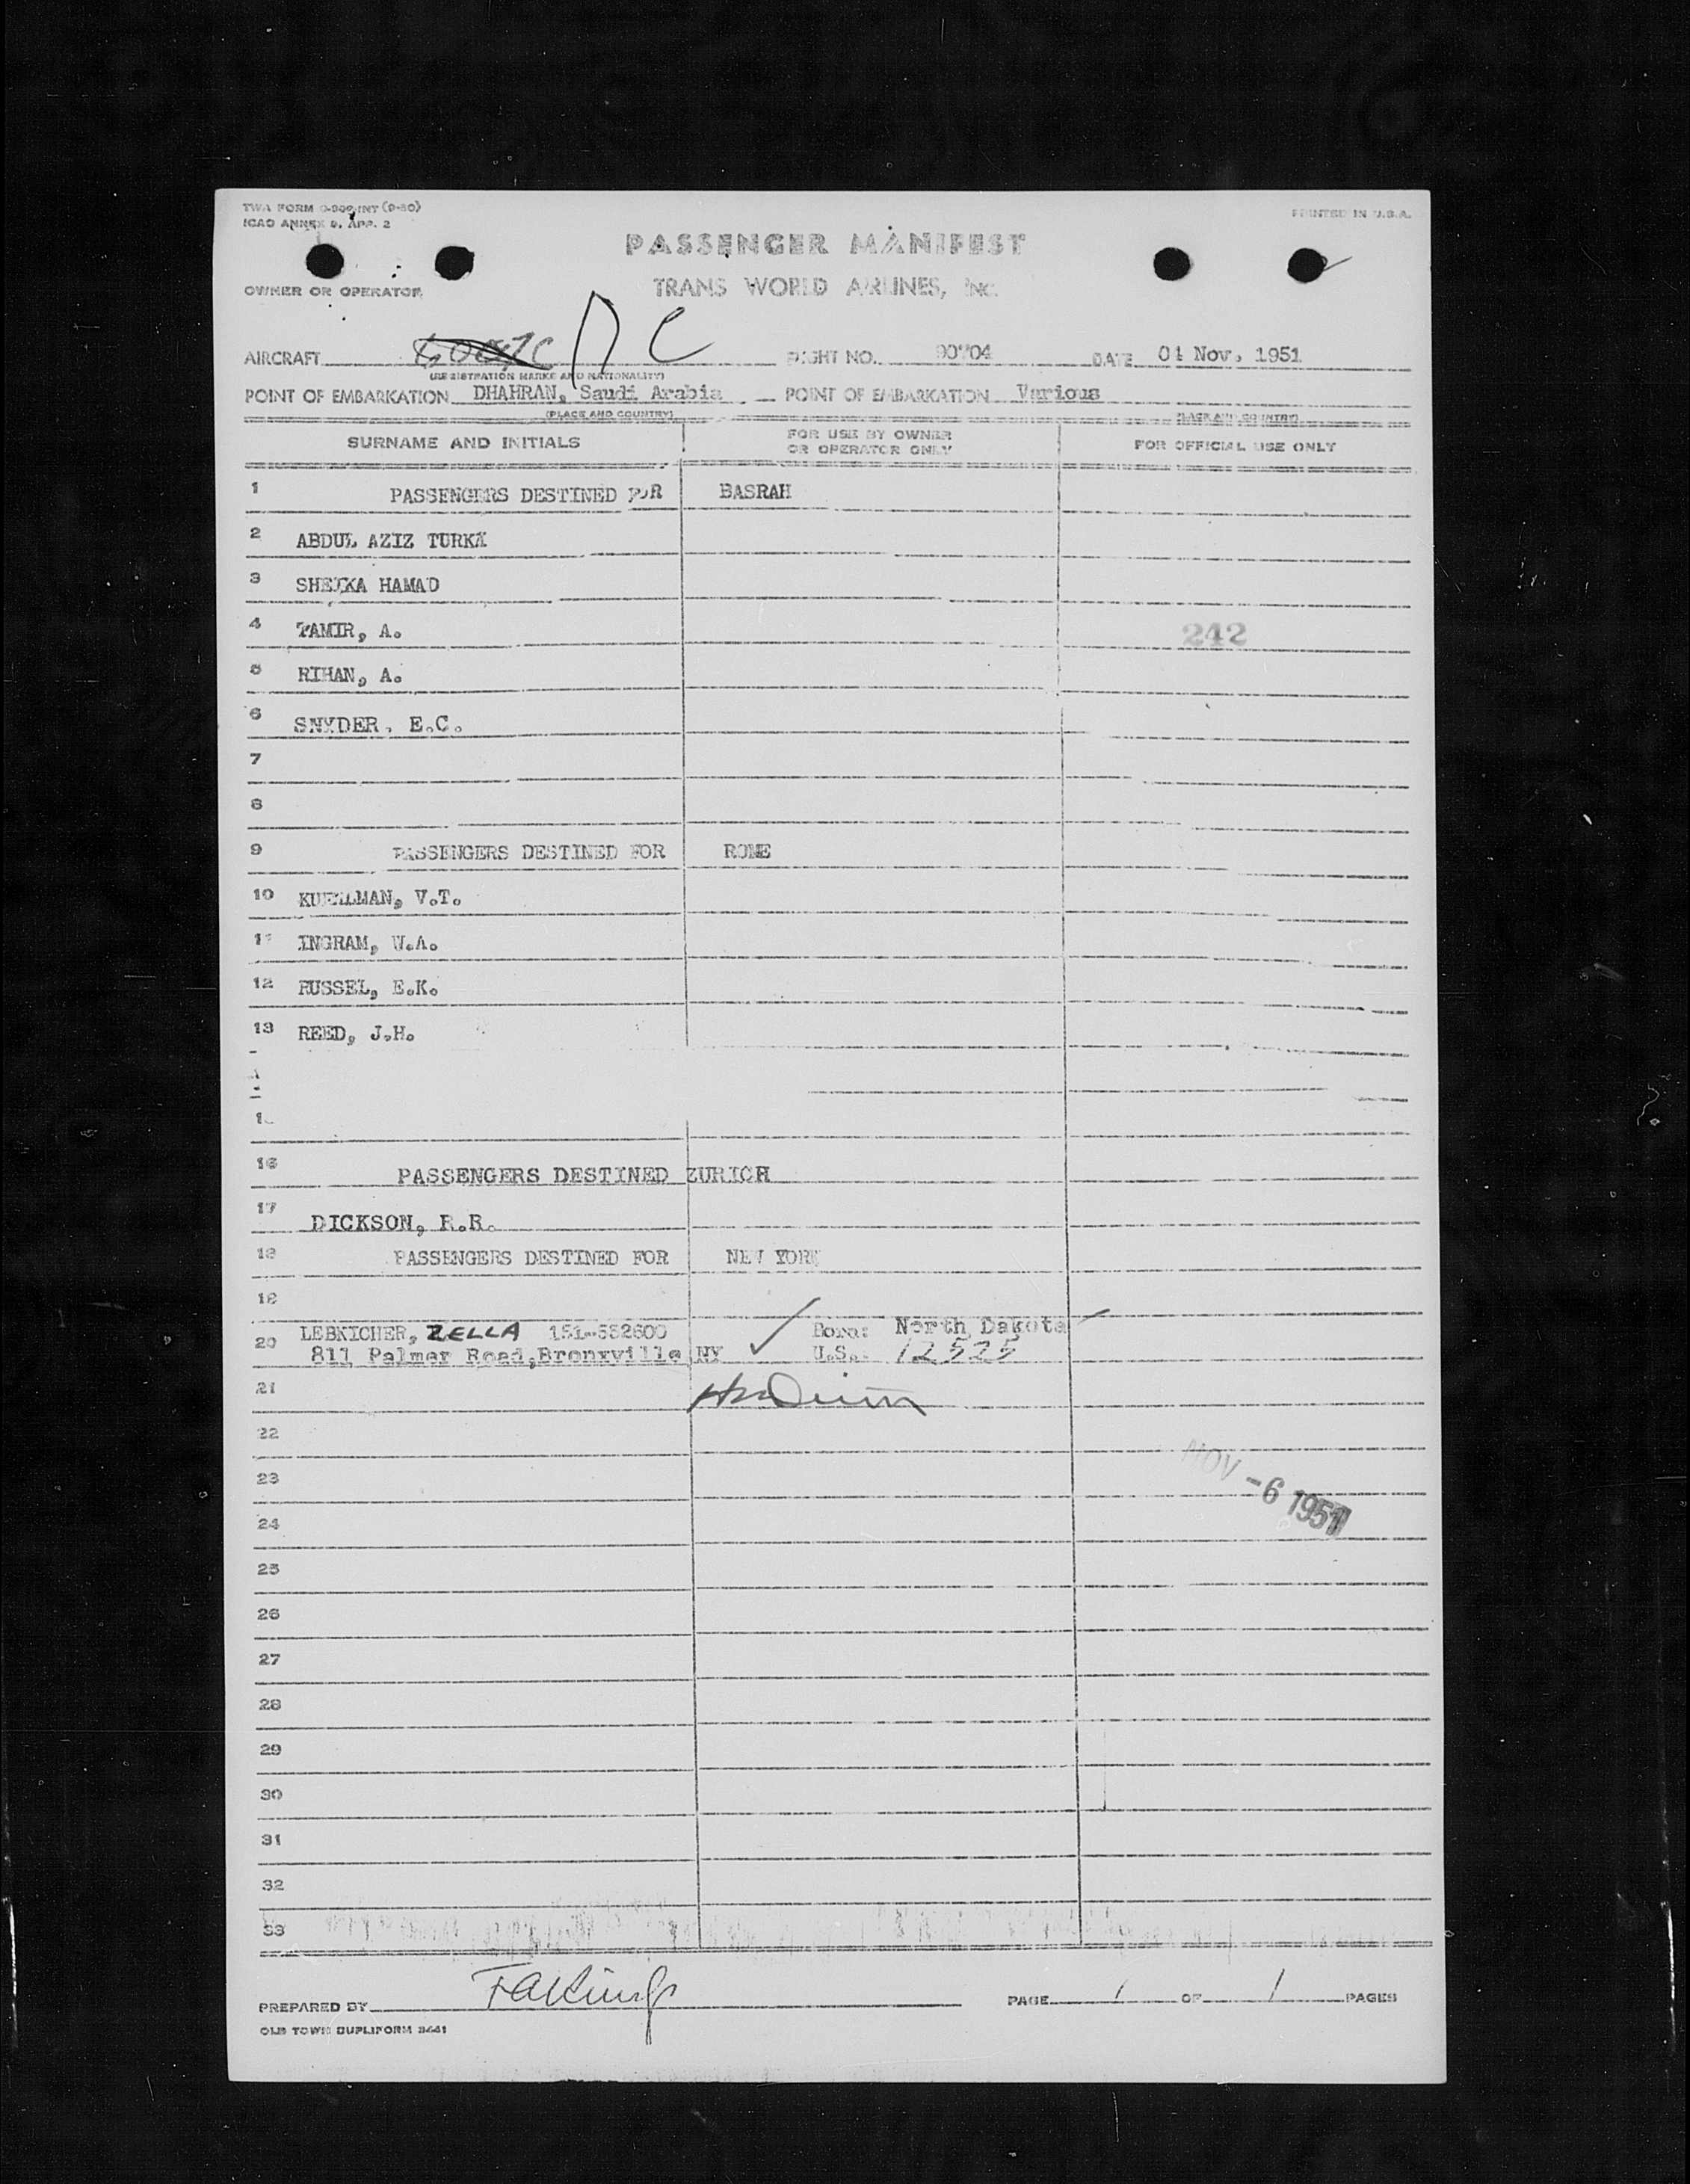 TWA FORM
ICAO ANNEX 9, APP. 2
PRINTED IN U.S.A.
PASSENGER MANIFEST
OWNER OR OPERATOR
TRANS WORLD AIRLINES, INC.
AIRCRAFT FLIGHT NO. DATE 01 Nov, 1951
(REGISTRATION MARKS AND NATIONALITY)
POINT OF EMBARKATION DHAHRAN, Saudi Arabia POINT OF EMBARKATION Various
(PLACE AND COUNTRY) (PLACE AND COUNTRY)
SURNAME AND INITIALS FOR USE BY OWNER OR OPERATOR ONLY FOR OFFICIAL USE ONLY
1 PASSENGERS DESTINED FOR BASRAH
2 ABDUL AZIZ
3 HAMAD
4 TAMIR, A. 242
5 RIHAN, A.
6 SNYDER, E.C.
7
8
9 PASSENGERS DESTINED FOR ROME
10 V.T.
11 INGRAM, W.A.
12 RUSSEL, E.K.
13 REED, J.H.
16 PASSENGERS DESTINED ZURICH
17 DICKSON, R.R.
18 PASSENGERS DESTINED FOR NEW YORK
19
20 LEBKICHER, ZELLA Born: North Dakota
811 Palmer Road, Bronxville NY U.S. 12525
21
22
NOV -6 1951
23
24
25
26
27
28
29
30
31
32
33
PREPARED BY PAGE 1 OF 1 PAGES
OLD TOWN DUPLIFORM